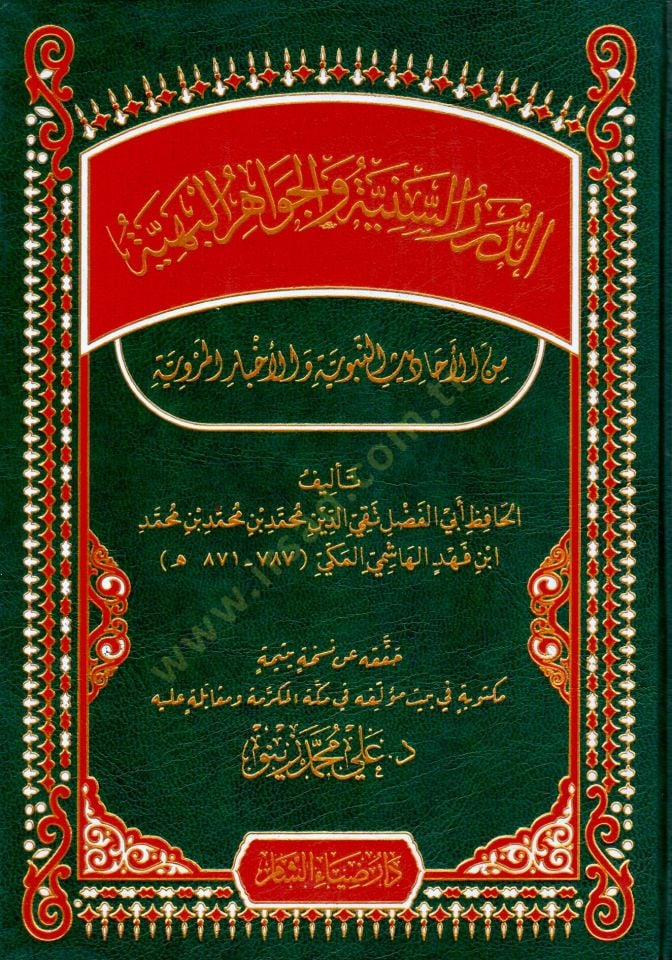 الدُّرَرُ السَّنِيَّةُ وَالجَوَاهِرُ البَهِيَّةُ
مِنَ الأَحَادِيثِ النَّبَوِيَّةِ وَالأَخْبَارِ المَرْوِيَّةِ
تَأليفُ
الحَافِظِ أَبِي الفَضْلِ تَقِيِّ الدِّينِ مُحَمَّدِ بْنِ مُحَمَّدِ بْنِ مُحَمَّدِ
ابْنِ فَهْدٍ الهَاشِمِيِّ المَكِّيِّ (٧٨٧ - ٨٧١ هـ)
حَقَّقَهُ عن نسخةٍ يتيمةٍ
مكتوبةٍ في بيتِ مؤلِّفه في مكَّة المكرَّمة ومقابلةٍ عليه
د. عَلي مُحَمَّد زينو
دَارُ ضِيَاءِ الشَّامِ
www.ihsan.com.tr